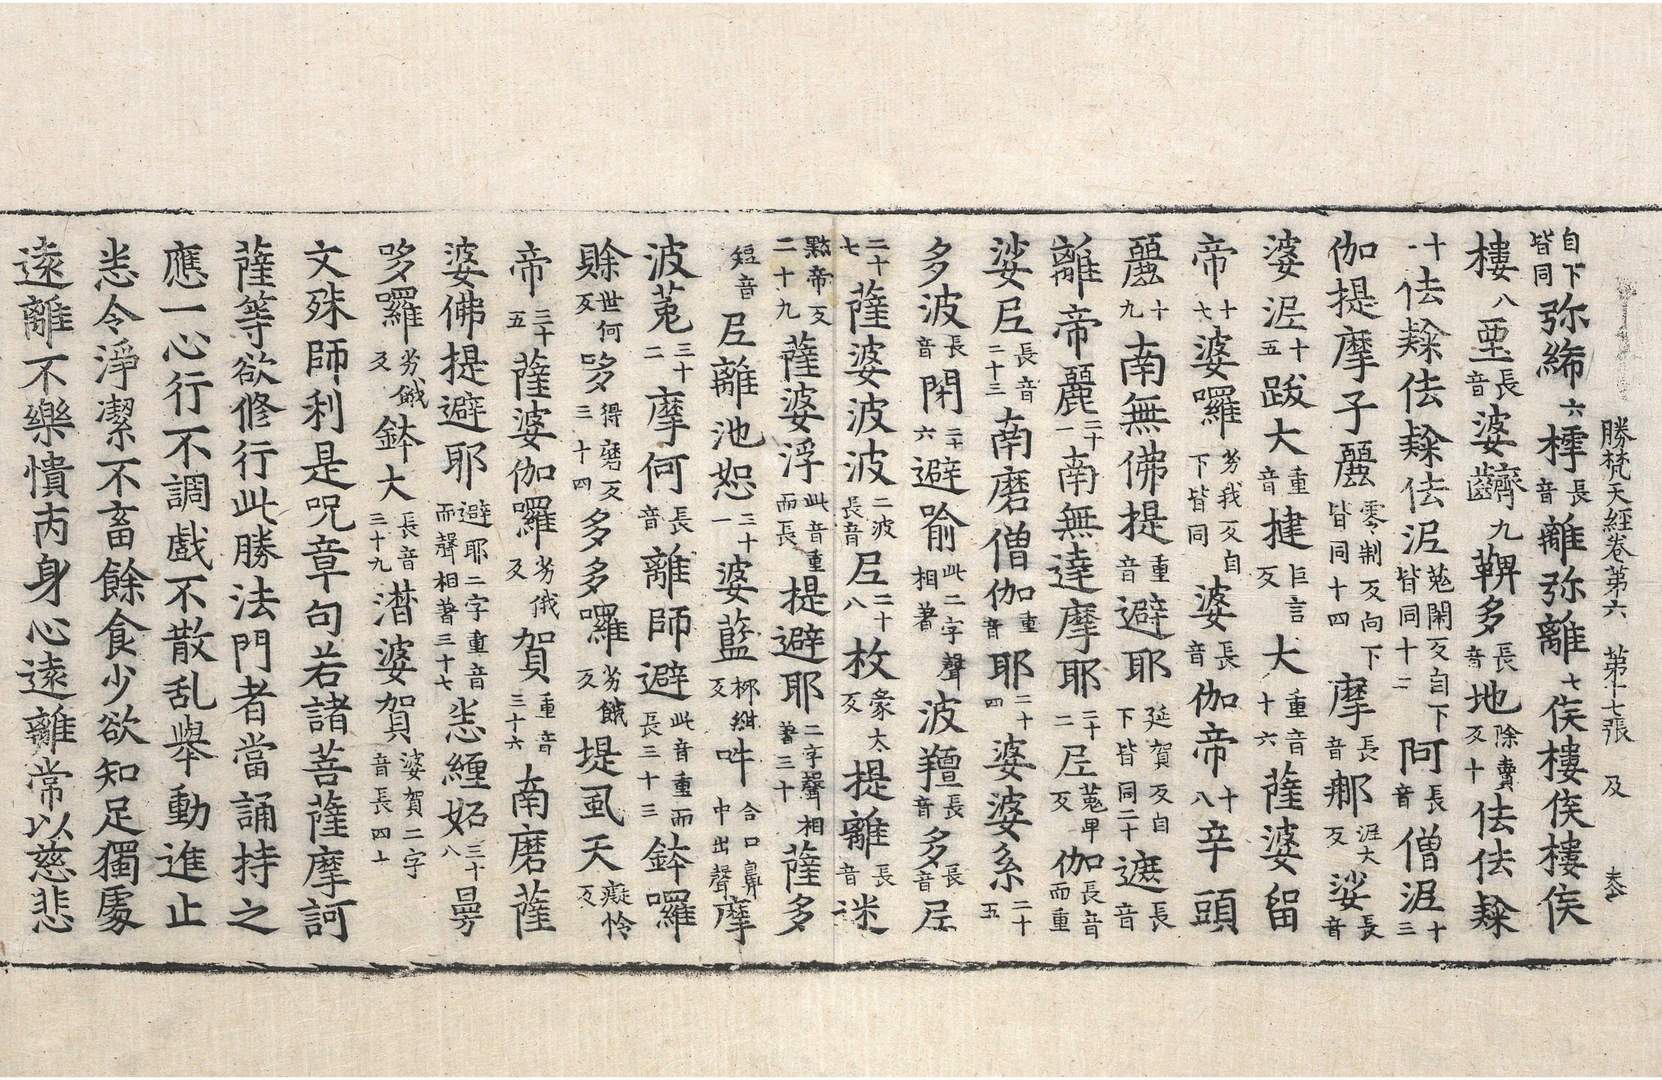 勝梵天經卷第六　第十七張　及
自下皆同弥絺六樰長音離弥離七侯樓侯樓侯
樓八堊長音婆齌九鞞多長音地除賣反十佉佉𥻦
十一佉𥻦佉𥻦佉泥菟閑反自下皆同十二阿長音僧泥十三
伽提摩子麗零制反向下皆同十四摩長音那涅大反娑長音
婆泥十五跋大重音揵巨言反大重音十六薩婆留
帝十七婆囉劣我反自下皆同婆長音伽帝十八辛頭
麗十九南無佛提重音避耶延賀反自下皆同二十遮長音
離帝麗二十一南無達摩耶二十二尼菟卑反伽長音而重
娑尼長音二十三南磨僧伽重音耶二十四婆婆系二十五
多波長音閑二十六避喻此二字聲相著波羶長音多長音尼
二十七薩婆波波二波長音尼二十八枚彖太反提離長音迷
點帝反二十九薩婆浮此音重而長提避耶二字聲相著三十薩多
短音尼離池恕三十一婆藍梛紺反吽合口鼻中出聲摩
波菟三十二摩何長音離師避此音重而長三十三鉢囉
賒世何反哆得磨反三十四多多囉劣餓反堤虱天癡怜反
帝三十五薩婆伽囉劣俄反賀重音三十六南磨薩
婆佛提避耶避耶二字重音而聲相著三十七恙緾妬三十八曼
哆囉劣餓反鉢大長音三十九潛婆賀婆賀二字音長四十
文殊師利是呪章句若諸菩薩摩訶
薩等欲修行此勝法門者當誦持之
應一心行不調戲不散乱舉動進止
悉令淨潔不畜餘食少欲知足獨處
遠離不樂憒丙身心遠離常以慈悲